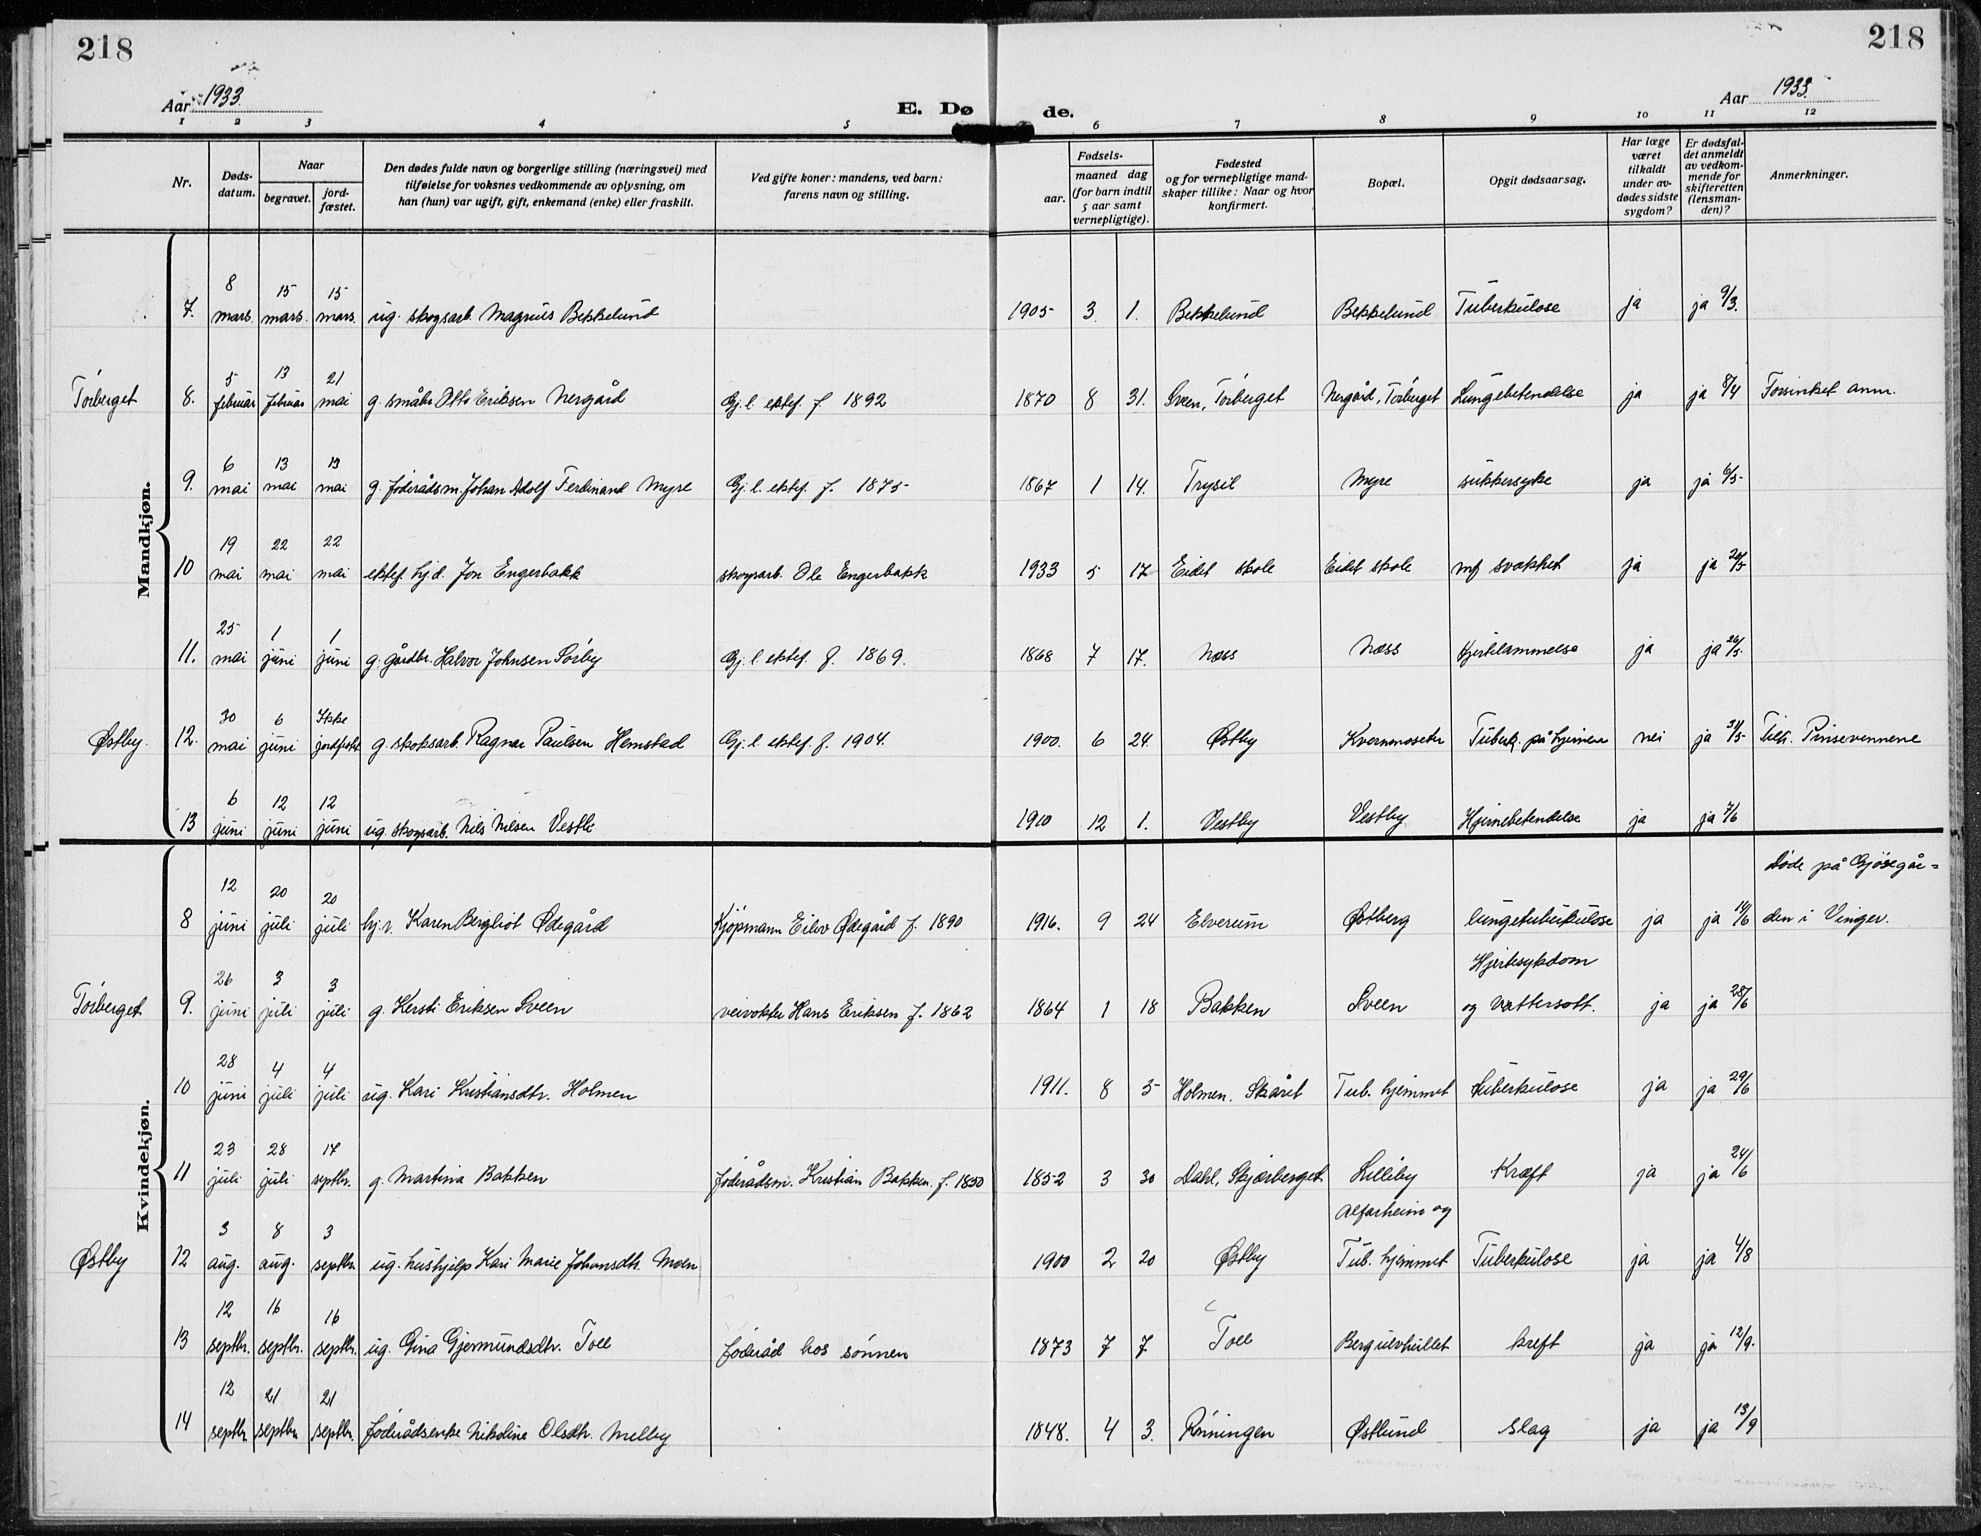 218
218
Aar 1933.
E. Dø
de.
Aar 1933.
1 2 3 4 5 6 7 8 9 10 11 12
Nr.
Døds-
datum.
Naar
begravet.
jord-
fæstet.
Den dødes fulde navn og borgerlige stilling (næringsvei) med
tilføielse for voksnes vedkommende av oplysning, om
han (hun) var ugift, gift, enkemand (enke) eller fraskilt.
Ved gifte koner: mandens, ved barn:
farens navn og stilling.
Fødsels-
aar.
maaned dag
(for barn indtil
5 aar samt
vernepligtige).
Fødested
og for vernepligtige mand-
skaper tillike: Naar og hvor
konfirmert.
Bopæl.
Opgit dødsaarsag.
Har læge
været
tilkaldt
under av-
dødes sidste
sygdom?
Er dødsfal-
det anmeldt
av vedkom-
mende for
skifteretten
(lensman-
den)?
Anmerkninger.
Mandkjøn.
8 15 15
7. mars. mars. mars. ug. skogsarb. Magnus Bekkelund 1905 3. 1. Bekkelund Bekkelund Tuberkulose ja ja 9/3.
5 13 21
Törberget 8. februar februar mai g. småbr. Otto Eriksen Nergård Gj. l. ektef. f. 1892 1870 8 31. Sveen, Törberget Nergård, Törberget Lungebetendelse ja ja 8/4 Forsinket anm.
6 13 13
9. mai mai mai g. föderådsm. Johan Adolf Ferdinand Myre Gj. l. ektef. f. 1875 1867 1 14. Trysil Myre sukkersyke ja ja 6/5
19 22 22
10 mai mai mai ektef. hjd. Jon Engerbakk skogsarb. Ole Engerbakk 1933 5 17 Eidet skole Eidet skole mf svakhet ja ja 20/5
25 1 1
11. mai juni juni g. gårdbr. Halvor Johnsen Sörby Gj. l. ektef. f. 1869. 1868 7 17. Næss Næss Hjertelammelse ja ja 26/5.
30 6 Ikke
Østby. 12. mai juni jordfestet g. skoksarb. Ragnar Paulsen Hemstad Gj. l. ektef. f. 1904. 1900. 6 24. Østby Kvernmoseter Tuberk. på hjernen nei ja 31/5 Tilh. Pinsevennene
6 12 12
13 juni juni juni ug. skogsarb. Nils Nilsen Vestli 1910 12 1. Vestby Vestby Hjernebetendelse ja ja 7/6
Kvindekjøn.
Døde på Gjøsegår=
12 20 20
8 juni juli juli hj.v. Karen Bergliot Ødegård Kjöpmann Eilov Ødegård f. 1890 1916. 9 24 Elverum Østberg lungetuberkulose ja ja 14/6 den i Vinger.
26 3 3 Hjertesykdom
Törberget 9. juni juli juli g. Kersti Eriksen Sveen veivokter Hans Eriksen f. 1862 1864 1 18 Bakken Sveen og Vattersott. ja ja 28/6
28 4 4
10 juni juli juli ug. Kari Kristiansdtr. Holmen 1911. 8 5 Holmen. Skåret Tub. hjemmet Tuberkulose ja ja 29/6
23 28 17
11 juli juli septbr. g. Martina Bakken föderådsm. Kristian Bakken. f. 1850 1852 3 30 Dahl, Skjærberget Lilleby Kræft ja ja 24/6
3 8 3 Alfarheim og
Østby 12 aug. aug. septbr. ug. hushjelp Kari Marie Johansdtr. Moen 1900 2 20 Østby Tub. hjemmet Tuberkulose ja ja 4/8
12 16 16
13 septbr. septbr. septbr. ug. Gina Gjermundsdtr. Toll föderåd hos sönnen 1873 7 7 Toll Bergulvhullet kreft ja ja 12/9.
12 21 21
14 septbr. septbr. septbr. föderådsenke Nikoline Olsdtr. Melby 1848. 4 3. Rönningen Østlund slag ja ja 13/9